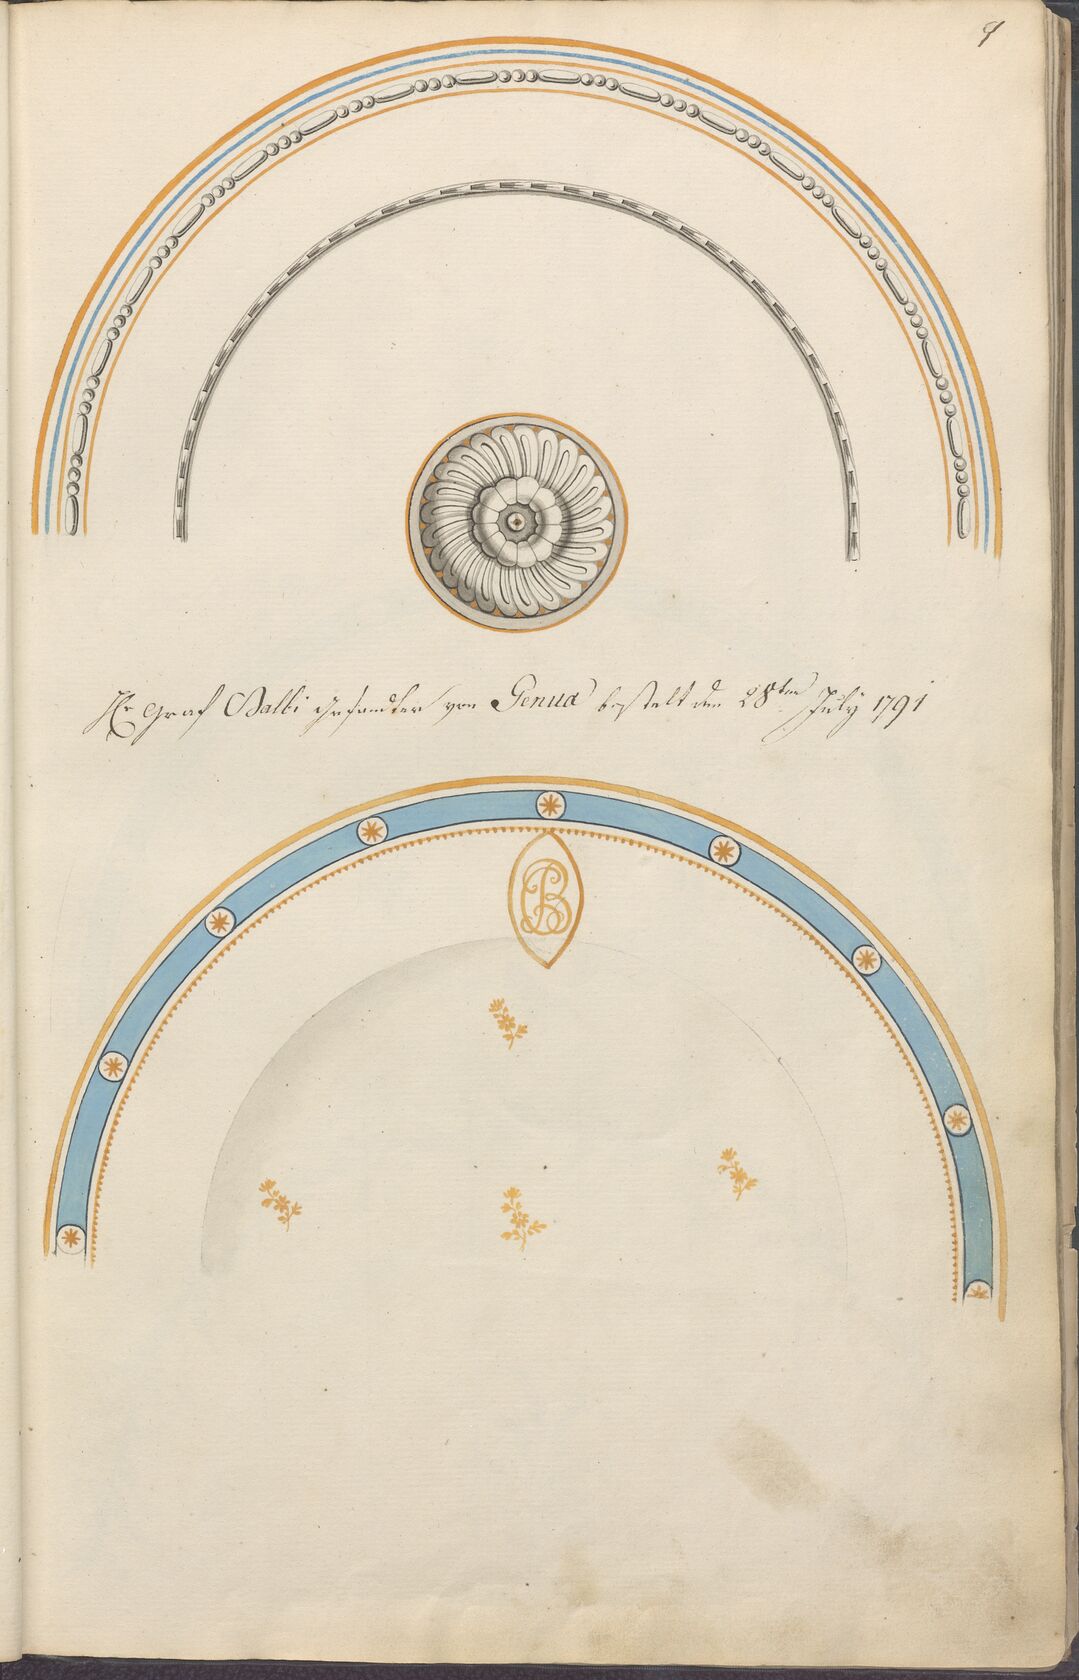 9
Hr Graf Balbi Gesandter von Genua bestelt den 28ten July 1791
EB